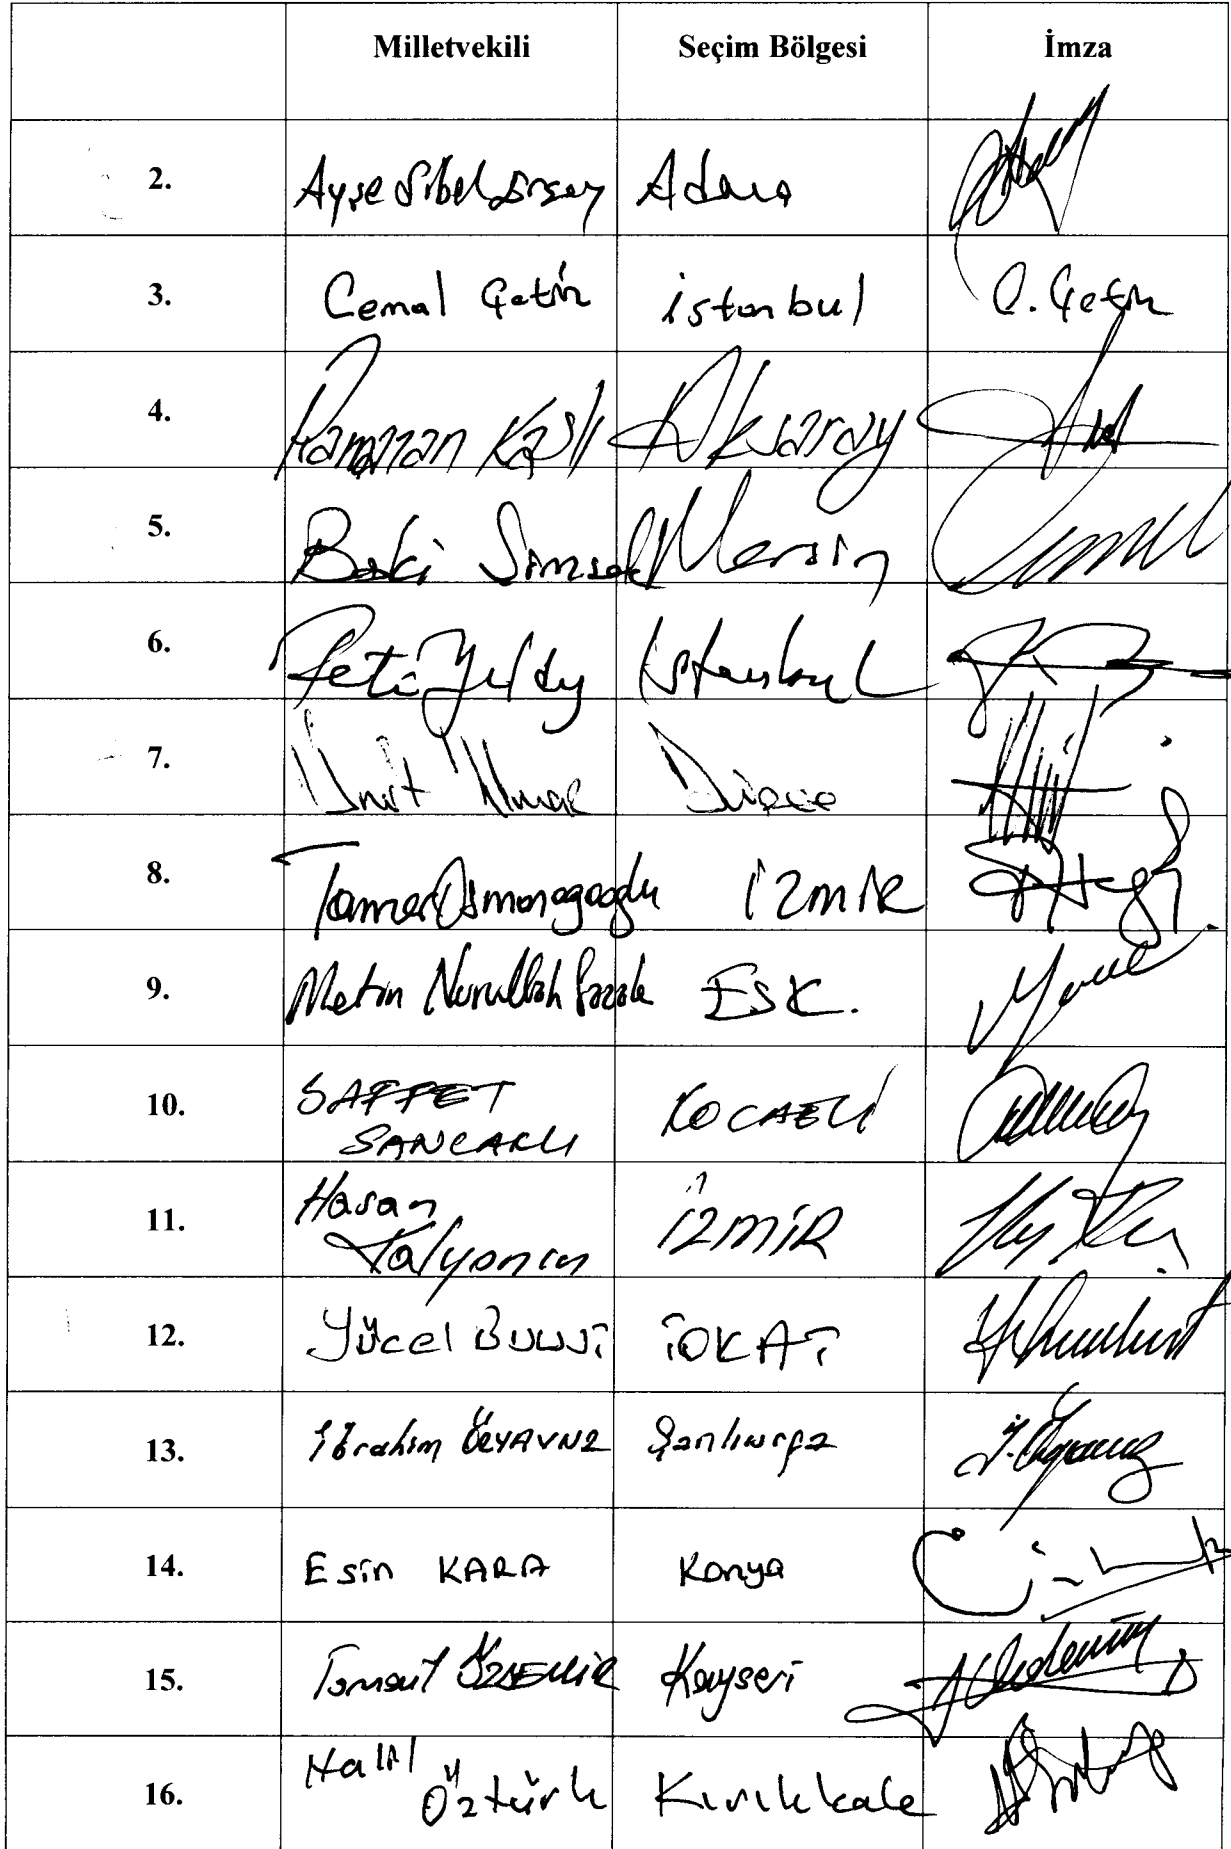 Milletvekili Seçim Bölgesi İmza
2. Ayşe Sibel Ersoy Adana
3. Cemal Çetin istanbul C. Çetin
4. Ramazan Kaşlı Aksaray
5. Baki Şimşek Mersin
6. Feti Yıldız İstanbul
7. Ümit Yılmaz Düzce
8. Tamer Osmanağaoğlu İZMİR
9. Metin Nurullah Sazak ESK.
10. SAFFET
SANCAKLI KOCAELİ
11. Hasan
Kalyoncu İZMİR
12. Yücel BULUT TOKAT
13. İbrahim ÖZYAVUZ Şanlıurfa
14. Esin KARA Konya
15. İsmail ÖZDEMİR Kayseri
16. Halil
Öztürk Kırıkkale